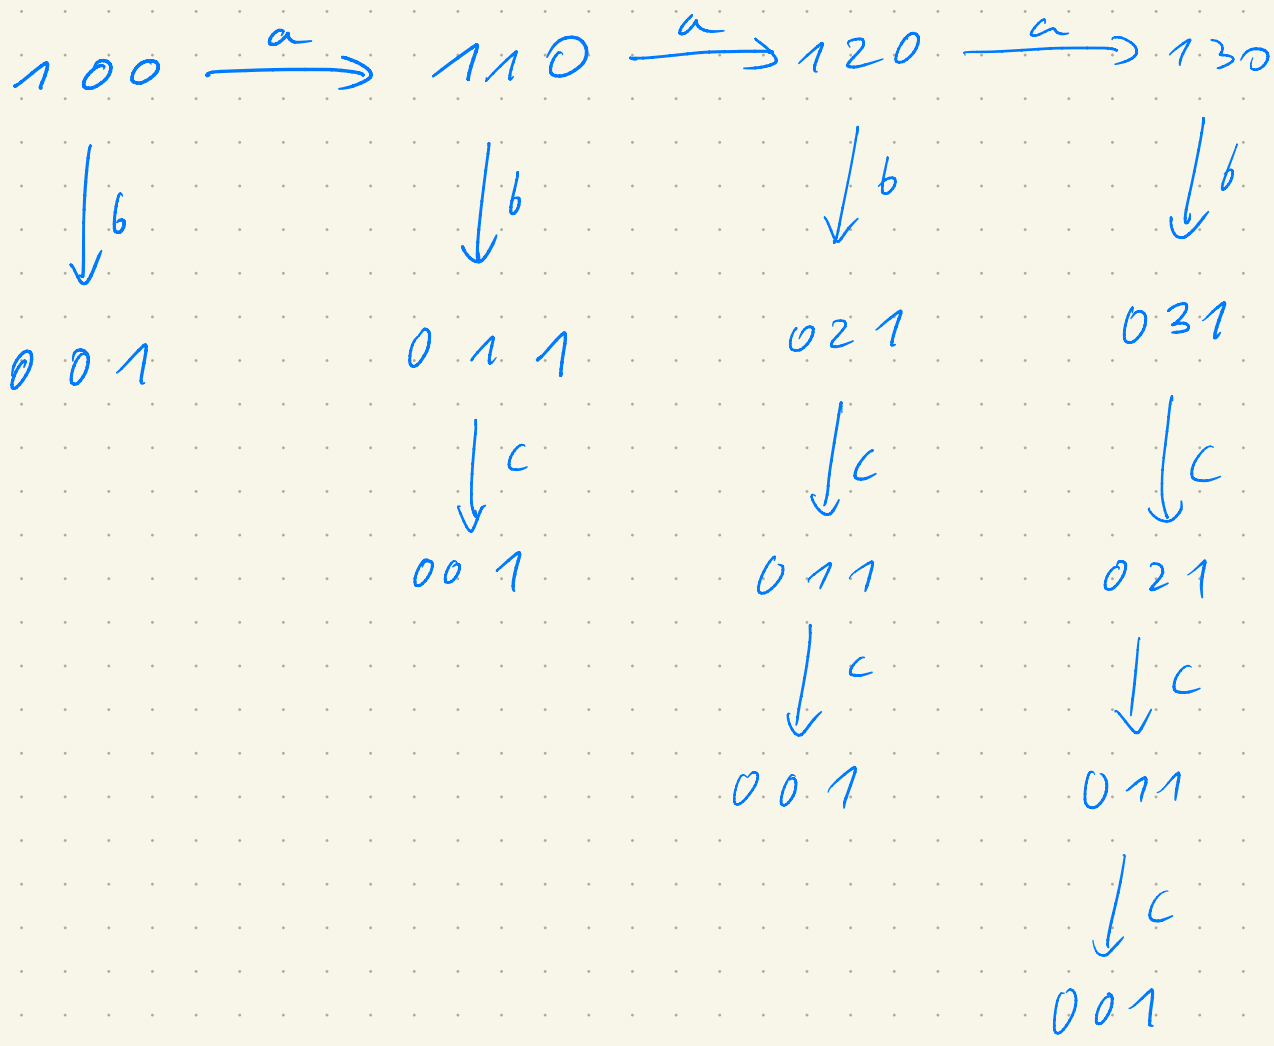 a a a
100 110 120 130
b b b b
001 011 021 031
c c c
001 011 021
c c
001 011
c
001